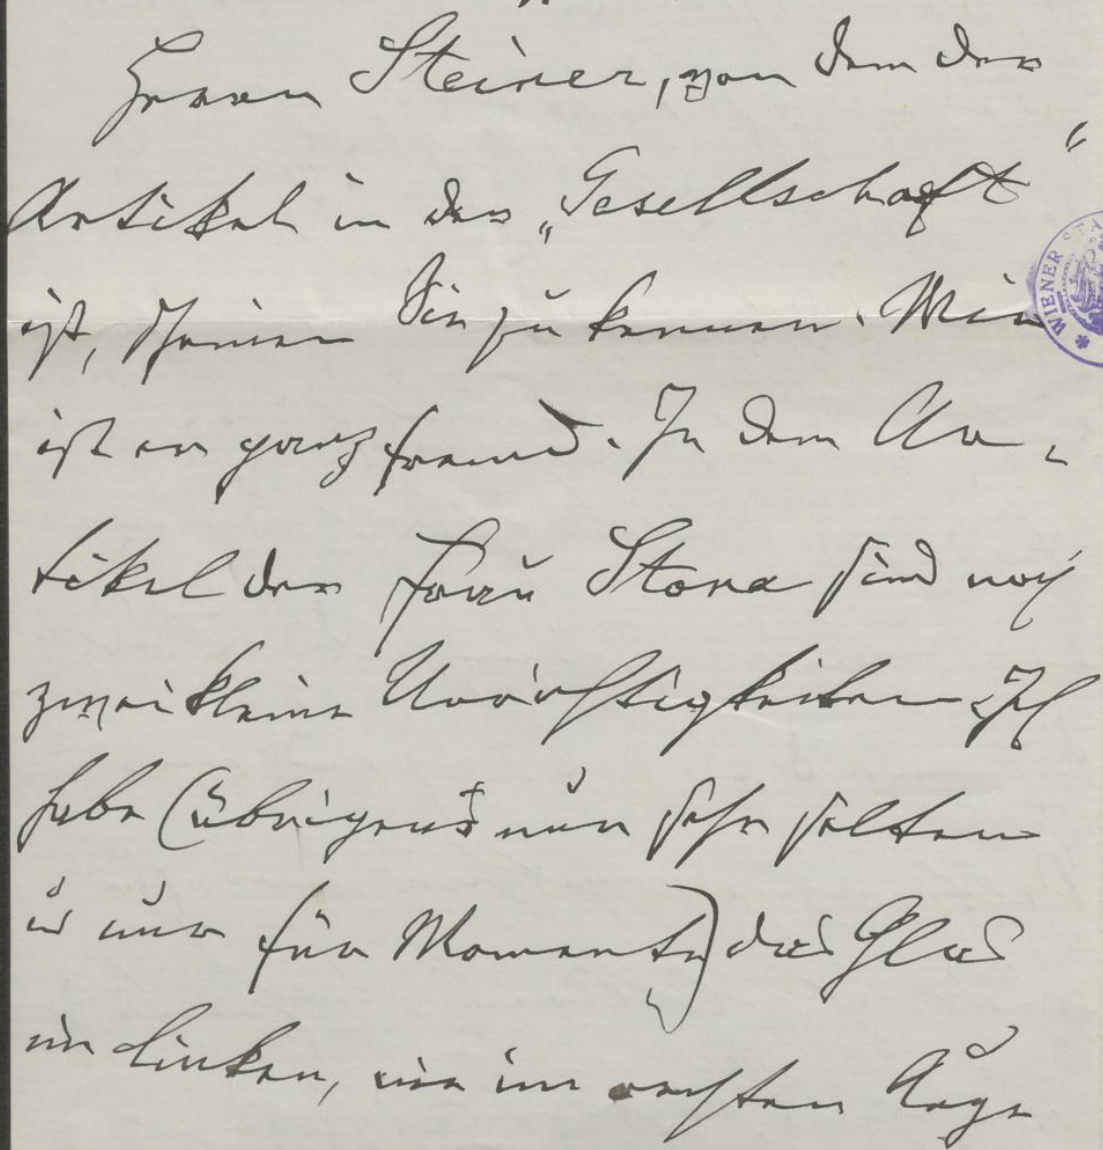 Herrn Steiner, von dem der
Artikel in der „Gesellschaft“
ist, scheinen Sie zu kennen. Mir
ist er ganz fremd. In dem Ar-
tikel der Frau Stona sind noch
zwei kleine Unrichtigkeiten. Ich
habe (übrigens nur sehr selten
u nur für Momente) das Glas
im linken, nie im rechten Auge
WIENER STA